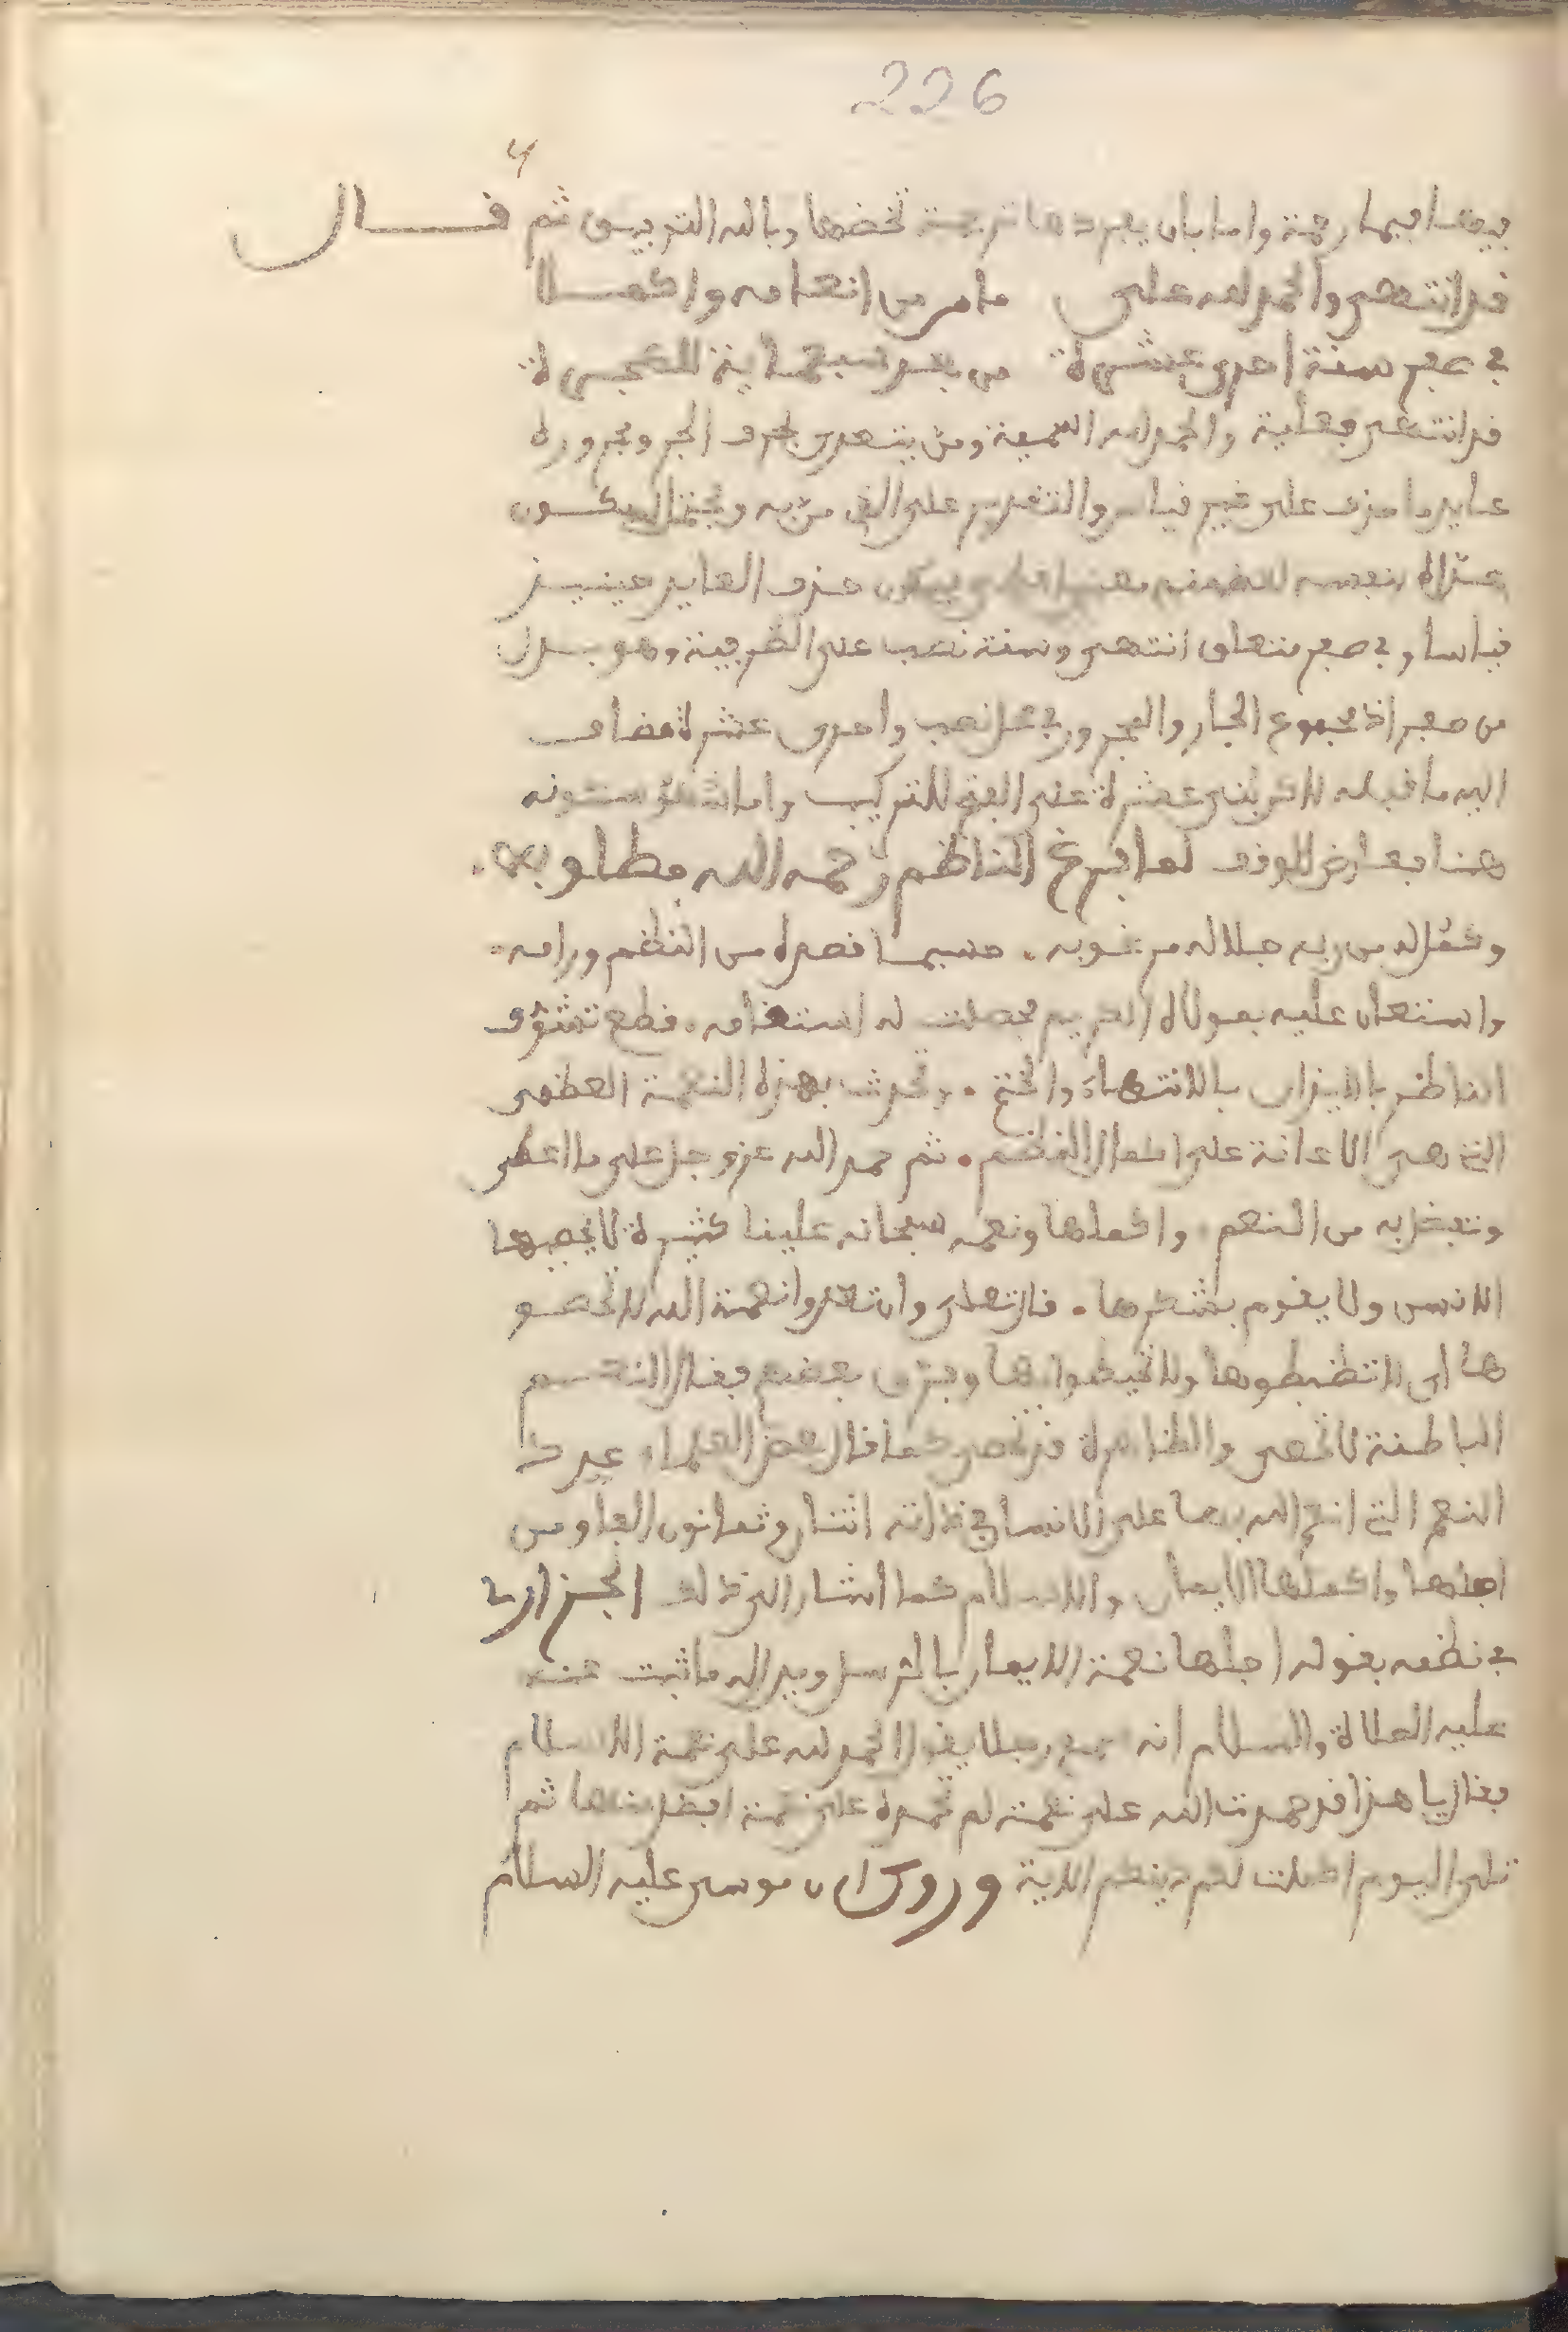 226
فيها رحمة واما بان يفردها ترجمة تخصها وبالله التوفيق ثم قال
قد انتهى والحمد لله على ما من من انعامه واكملا
في صفر سنة احدى عشرة من بعد سبعماية للهجرة
قد انتهى فعلية والحمد لله اسمية ومن يتعدى بحرف الجر ومجروره
عايد ما حذف على غير قياس والتقدير على الذي من به ويحتمل ان يكون
عداه بنفسه لتضمنه معنى فيكون حذف العايد حينيذ
قياسا وفي صفر متعلق انتهى وسنة نصب على الظرفية وهو بدل
من صفر اذ مجموع الجار والمجرور في محل نصب واحدى عشرة مضاف
اليه ما قبله لاكن بنى عشرة على الفتح للتركيب واما سكونه
هنا فعارض للوقف لما فرغ الناظم رحمه الله مطلوبه
وكمل له من ربه جلاله مرغوبه. حسبما قصده من النظم ورامه.
واستعان عليه بمولاه الكريم فحصلت له استقامه. قطع تشوف
الناظر بالايذان بالانتهاء والختم. وتحدث بهذه النعمة العظمى
التي هي الاعانة على اكمال النظم. ثم حمد الله عز وجل على ما اعطى
وتفضل به من النعم واكملها ونعمه سبحانه علينا كثيرة لا يحصيها
الانس ولا يقوم بشكرها. قال تعالى وان تعدوا نعمة الله لا تحصو
ها اى لا تضبطوها ولا تحيطوا بها وفرق بعضهم فقال النعم
الباطنة لا تحصى والظاهرة قد تحصى كما قال بعض العلماء عدد
النعم التي انعم الله بها على الانسان في ذاته اثنان وثمانون الفا ومن
اجلها واكملها الايمان والاسلام كما اشار الى ذلك الجزاري
في نظمه بقوله اجلها نعمة الايمان بالرسل ويدل له ما ثبت عنه
عليه الصلاة والسلام انه سمع رجلا يقول الحمد لله على نعمة الاسلام
فقال يا هذا قد حمدت الله على نعمة لم تحمده على نعمة افضل منها ثم
تلى اليوم اكملت لكم دينكم الاية وروى ان موسى عليه السلام